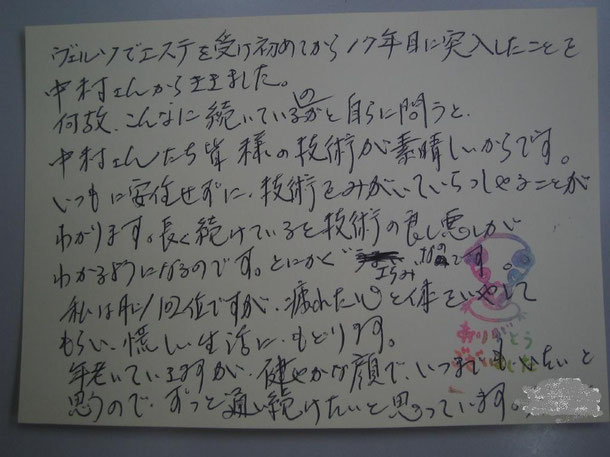 ヴェルソでエステを受け初めてから17年目に突入したことを
中村さんからききました。
何故、こんなに続いているのかと自らに問うと、
中村さんたち皆様の技術が素晴しいからです。
いつもに安住せずに、技術をみがいていらっしゃることが
わかります。長く続けていると技術の良し悪しが
わかるようになるのです。とにかく なのです。
私は月/1回位ですが、疲れた心と体をいやして
もらい、慌しい生活に、もどります。
年老いていますが、健やかな顔で、いつまでもいたいと
思うので、ずっと通い続けたいと思っています。
ありがとう